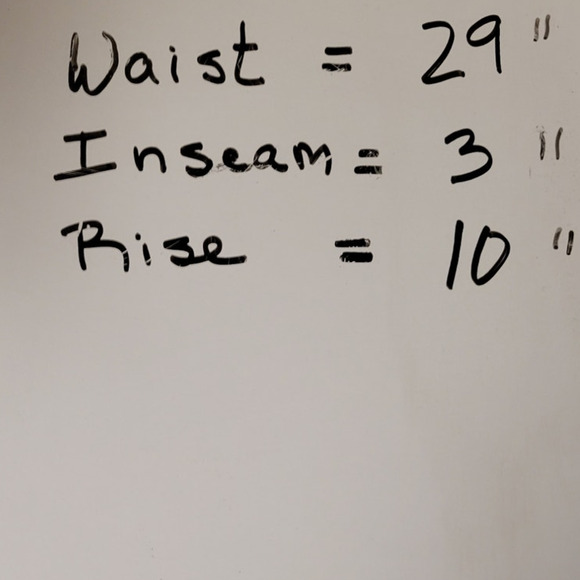 Waist = 29 "
Inseam = 3 "
Rise = 10 "